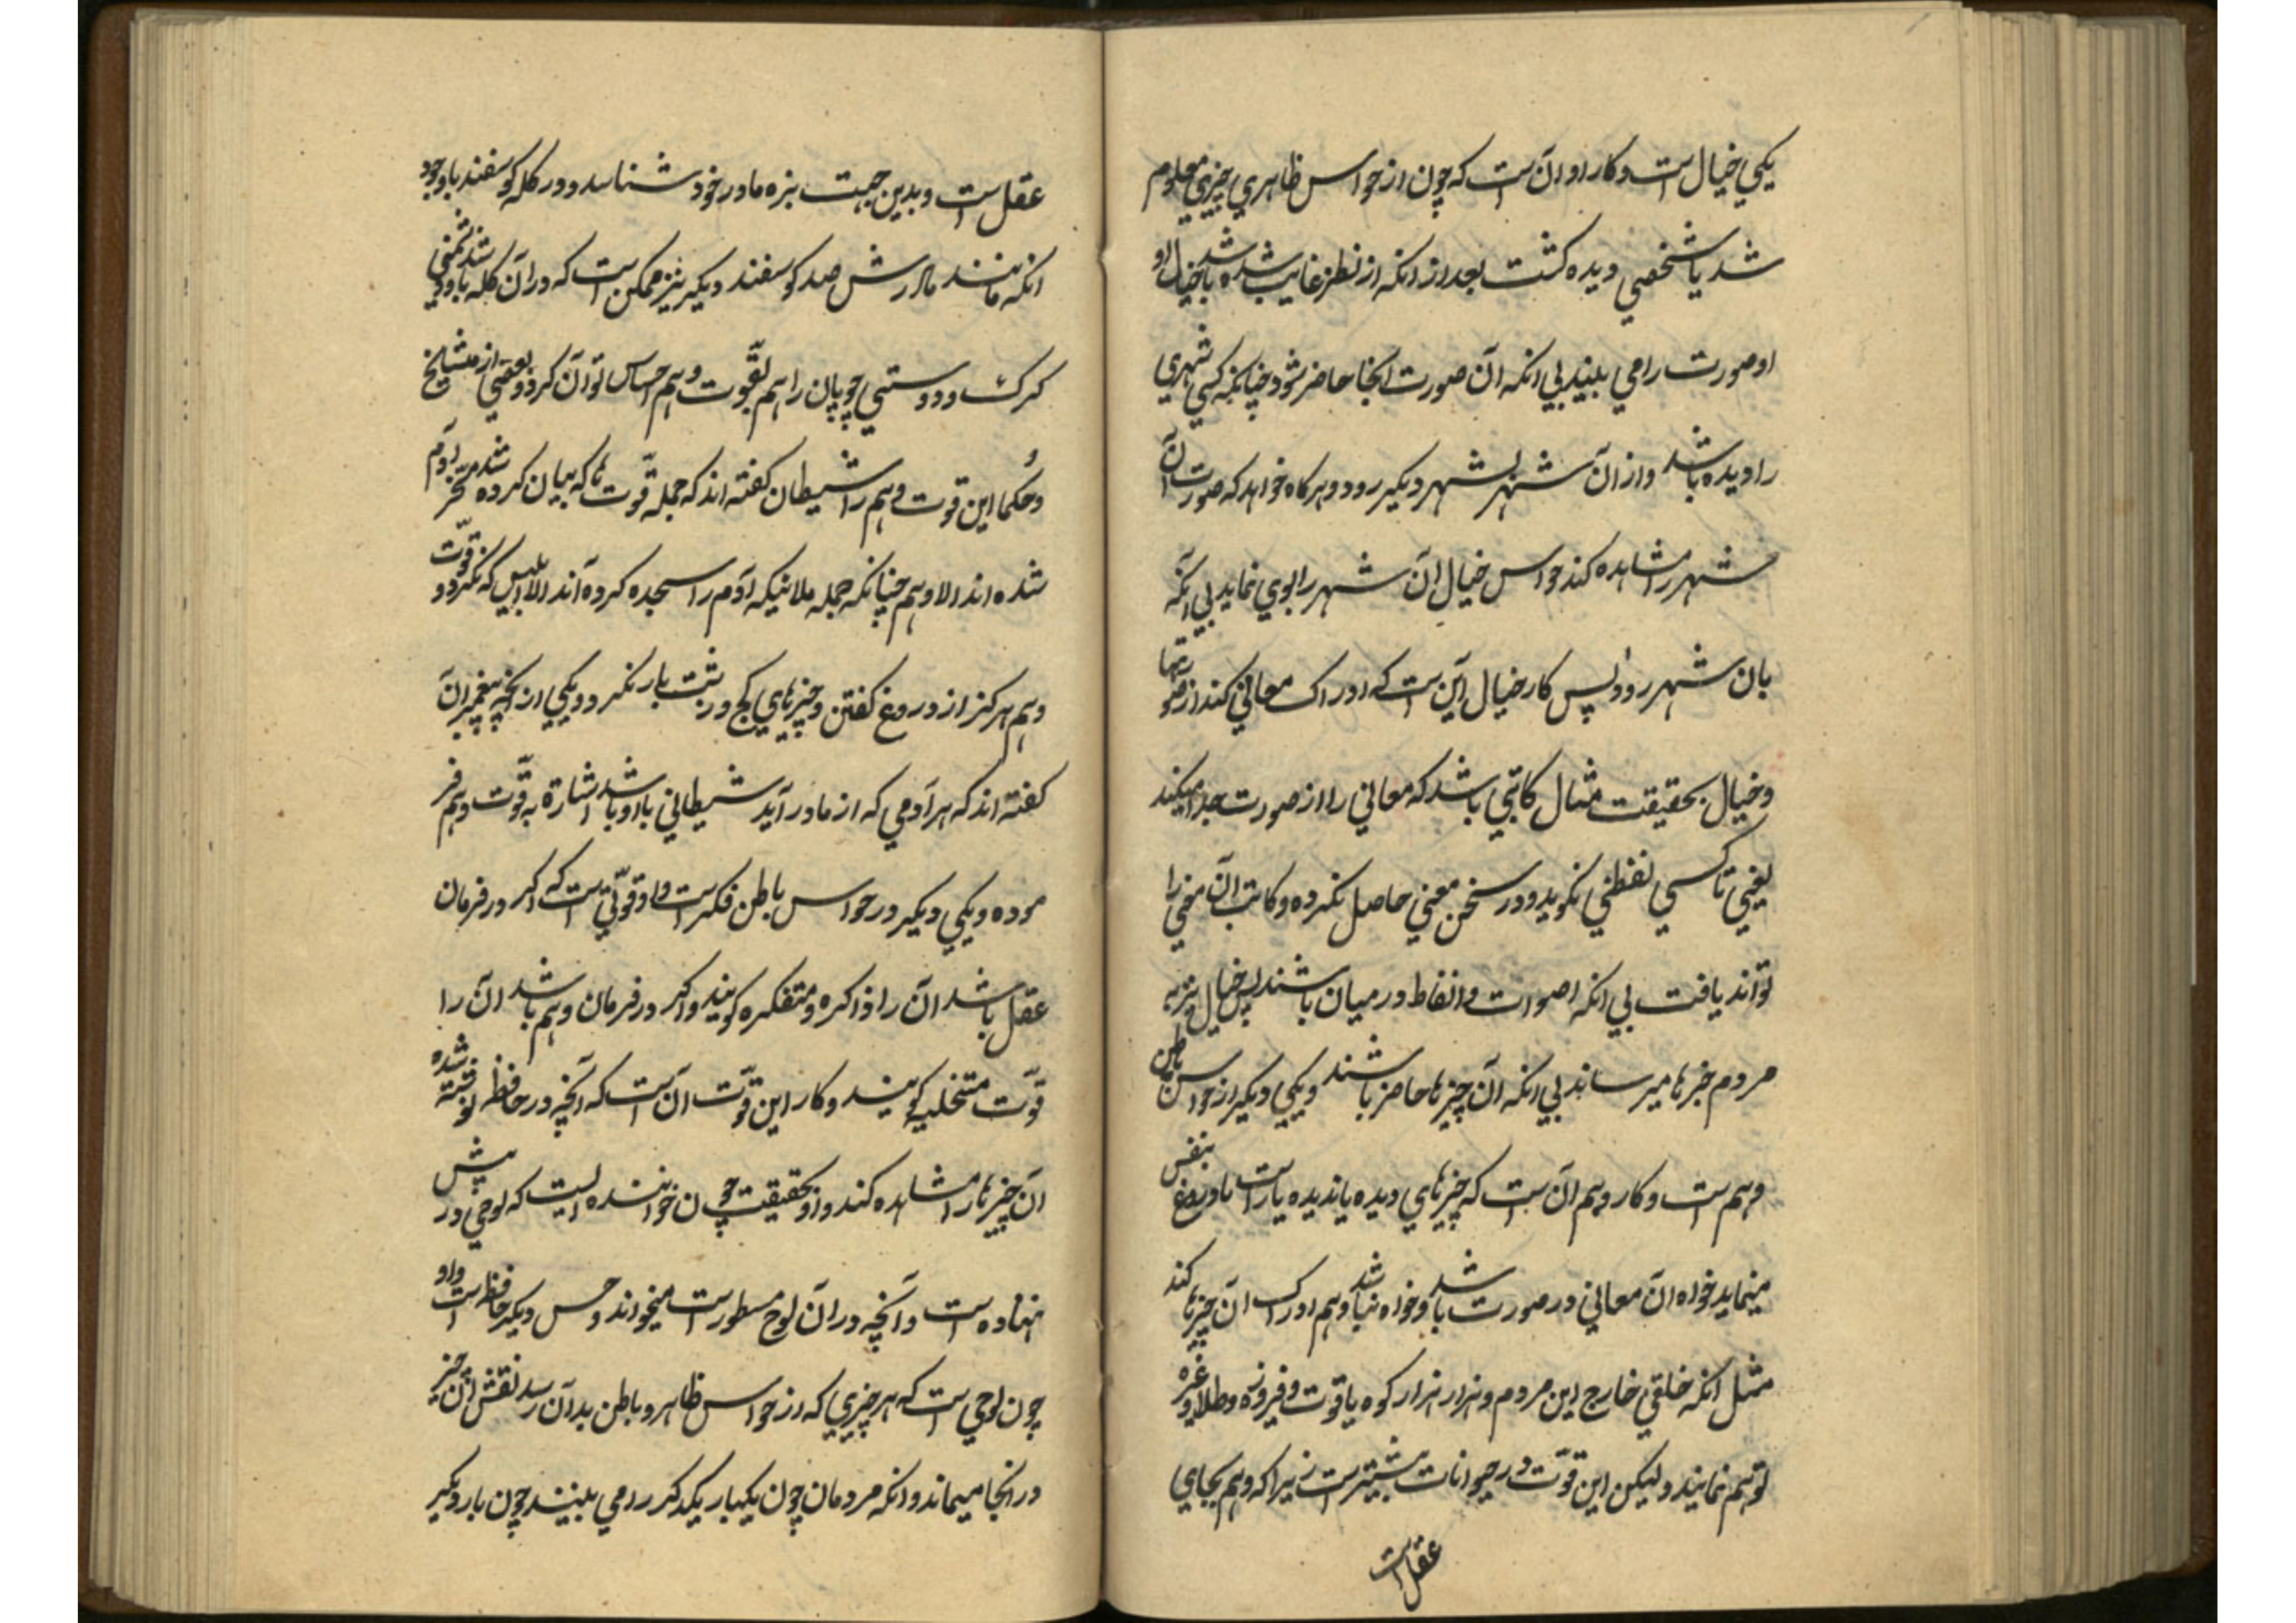 یکی خیال است و کار او آن است که چون از حواس ظاهری چیزی معلوم
شد یا شخصی دیده کشت بعد از انکه از نظر غایب شده باشد خیال او
او صورت را می بیند بی انکه آن صورت انجا حاضر شود چنانکه کسی شهری
را دیده باشد و از آن شهر بشهر دیکیر رود و هرکاه خواهد که صورت آن
شهر را مشاهده کند حواس خیال آن شهر را بوی نماید بی آنکه
بان شهر رود پس کار خیال این است که ادراک معانی کند از صورتها
و خیال بحقیقت مثال کاتبی باشد که معانی را از صورت جدا میکند
یعنی تا کسی لفظی نکوید و در سخن معنی حاصل نکرده و کاتب آن معنی را
تواند یافت بی انکه اصوات و الفاظ در میان باشند پس خیال نیز به
مردم خبرها میرساند بی انکه آن چیزها حاضر باشند و یکی دیکیر از حواس باطن
وهم است و کار وهم آن است که چیزهای دیده یا ندیده یا راست یا دروغ بنفس
مینماید خواه آن معانی در صورت باشد و خواه نباشد وهم ادراک آن چیزها کند
مثل انکه خلقی خارج این مردم و هزار هزار کوه یاقوت و فیروزه و طلا و غیره
توهم نمایند ولیکن این قوّت در حیوانات بیشتر است زیرا که وهم بجای
عقل است
عقل است و بدین جهت بزه مادر خود شناسد و در کله کوسفند باوجود
انکه مانند مادرش صد کوسفند دیکیر نیز ممکن است که در آن کله باشد و دشمنی
کرک و دوستی چوپان را هم بقوّت وهم احساس توان کرد و بعضی از مشایخ
و حکما این قوت وهم را شیطان کفته اند که جمله قوّت ها که بیان کرده شد مسخّر آدم
شده اند الا وهم چنانکه جمله ملائیکه آدم را سجده کرده اند الا ابلیس که نکرد و قوّت
وهم هرکز از دروغ کفتن و چیزهای کج و رتبت باز نکردد و یکی از نچه پیغمبران
کفته اند که هر آدمی که از مادر آید شیطانی با او باشد اشارة به قوّت وهم فر
موده و یکی دیکیر در حواس باطن فکر است و او قوّتی است که اکر در فرمان
عقل باشد آن را ذاکره و متفکره کویند و اکر در فرمان وهم باشد آن را
قوّت متخلیه کویند و کار این قوّت آن است که آنچه در حافظه نوشته شده
آن چیزها را مشاهده کند و او بحقیقت چون خواننده ایست که لوحی در پیش
نهاده است و آنچه در آن لوح مسطور است میخواند و حس دیکیر حافظه است و او
چون لوحی است که هر چیزی که از حواس ظاهر و باطن بدان رسد نقش آن چیز
در انجا میماند و انکه مردمان چون یکبار یکدکیر را می بینند چون بار دیکیر